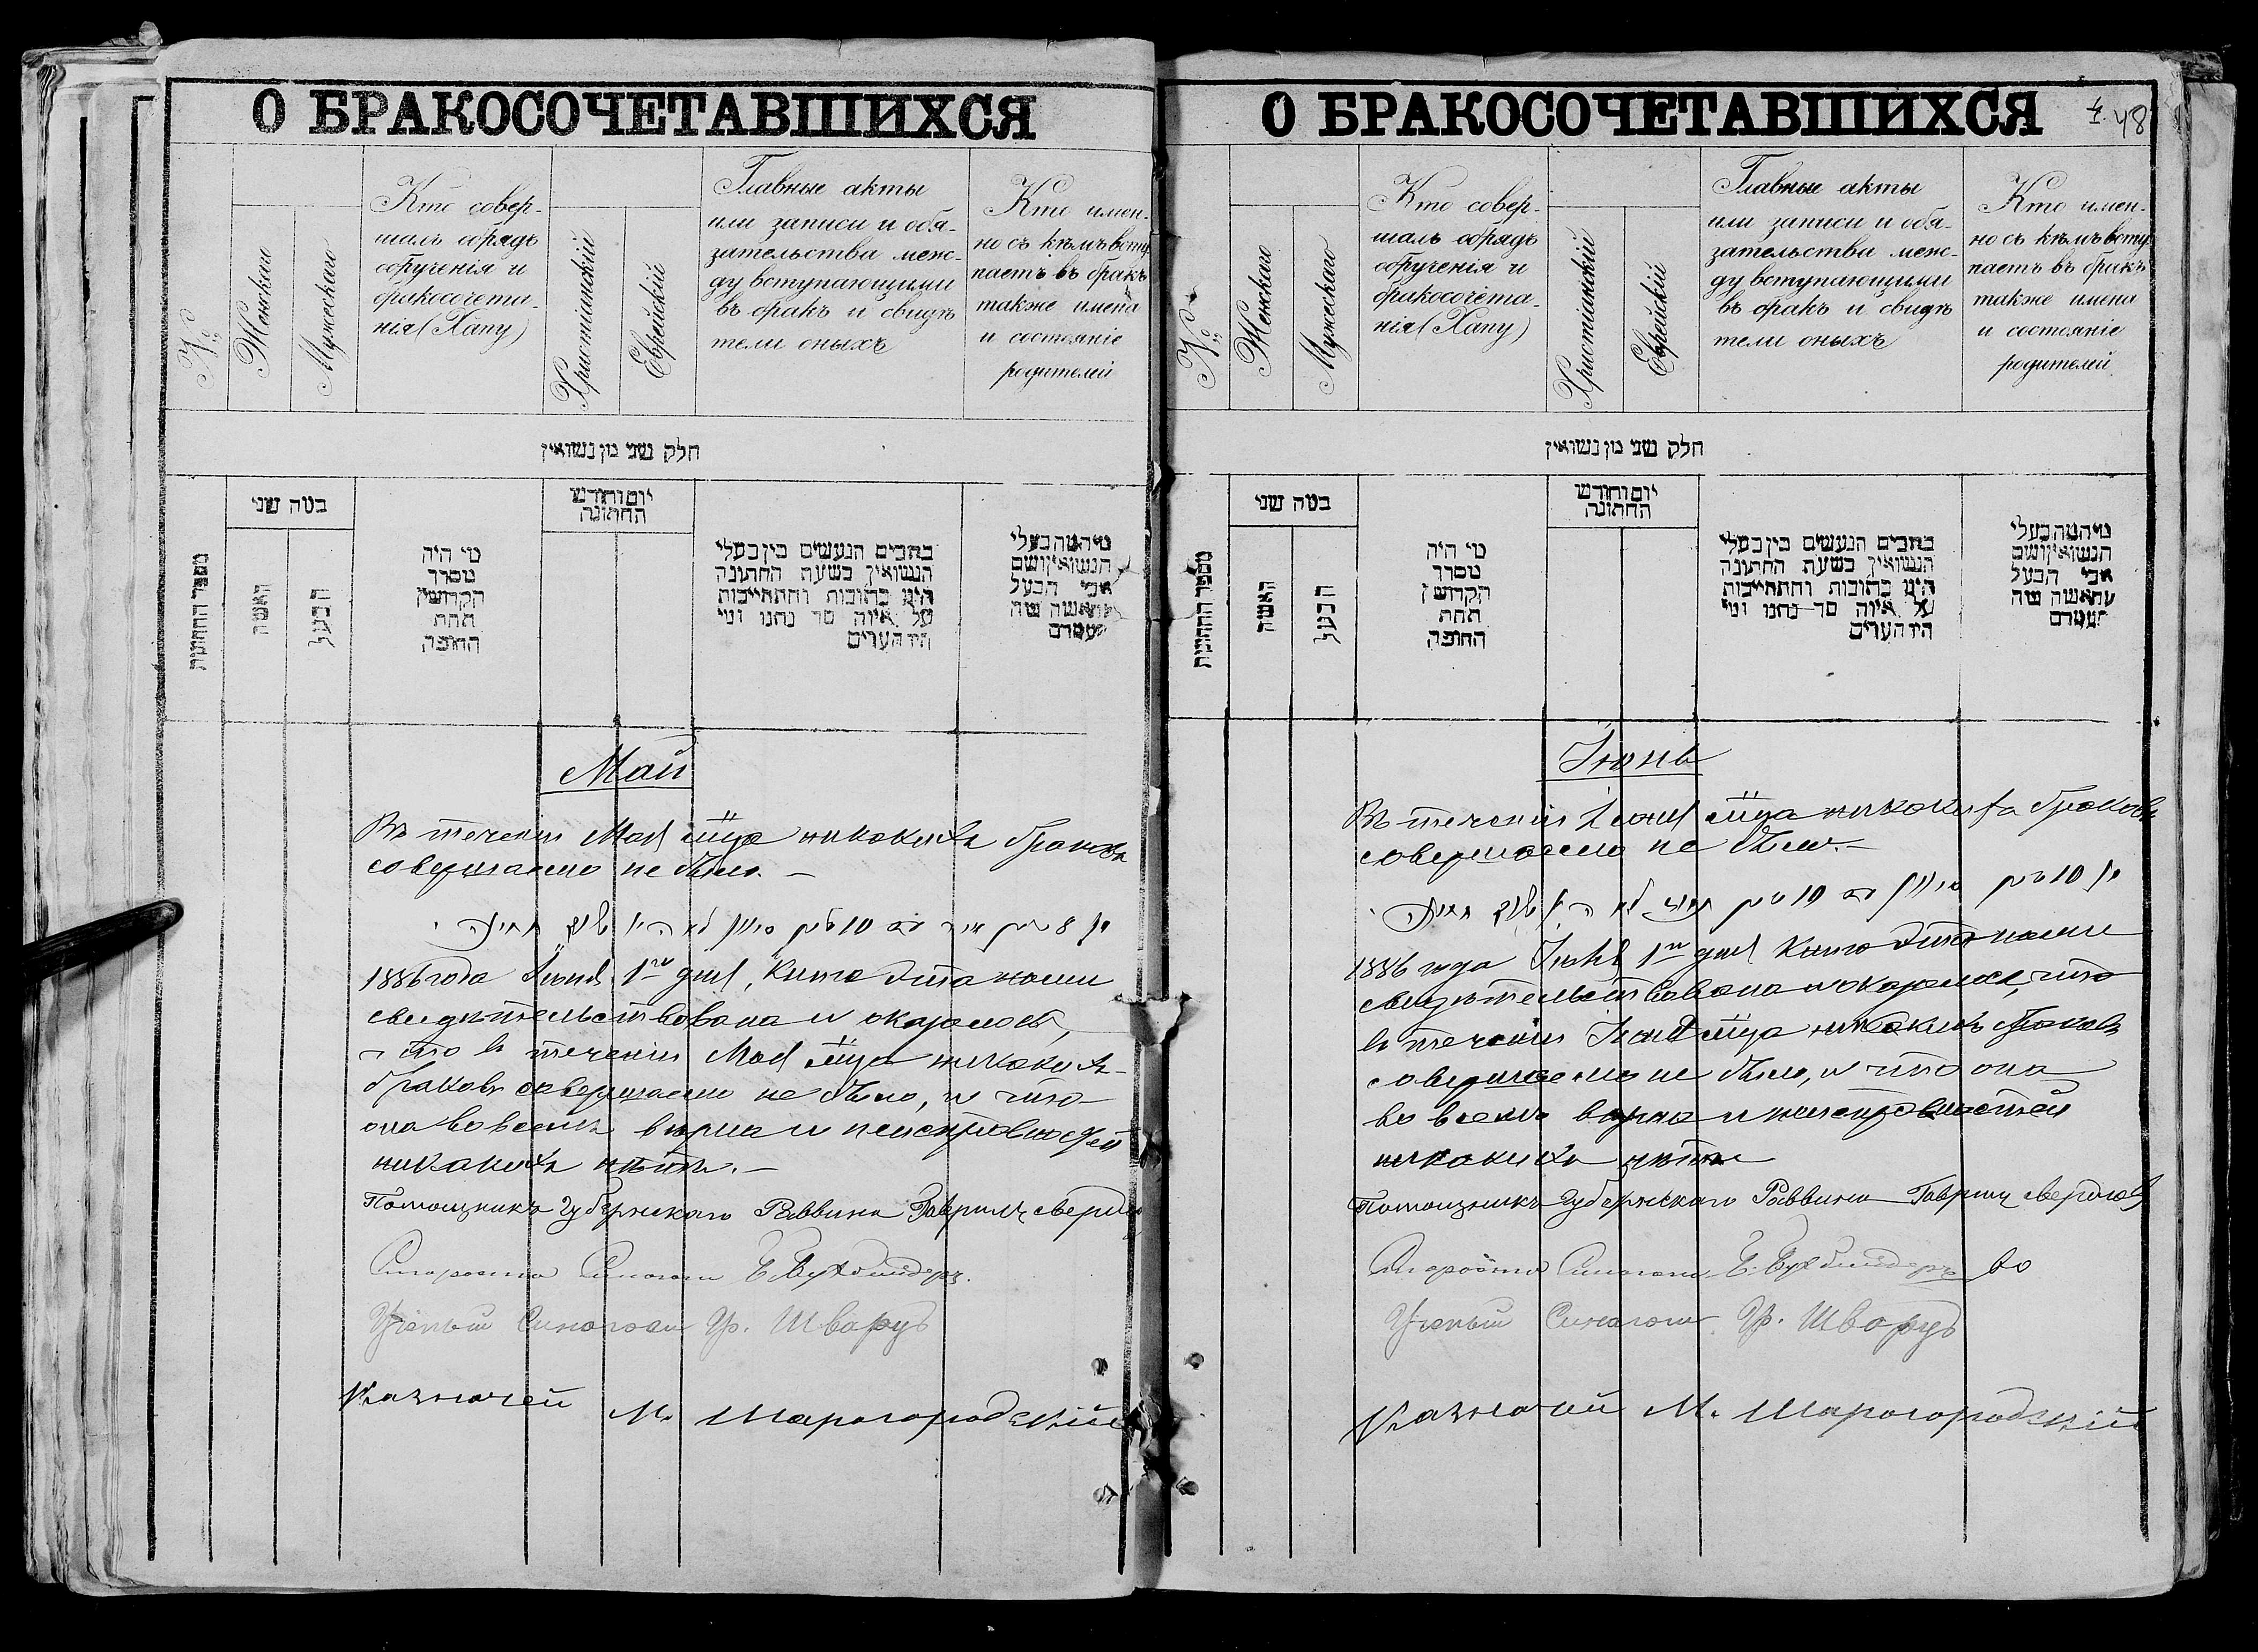 О БРАКОСОЧЕТАВШИХСЯ
№
Женскаго
Мужескаго
Кто совер-
шалъ обрядъ
обрученія и
бракосочета-
нія (Хапу)
Христіанскій
Еврейскій
Главные акты
или записи и обя-
зательства меж-
ду вступающими
въ бракъ и свидѣ
тели оныхъ
Кто имен-
но съ кѣмъ всту-
паетъ въ бракъ
также имена
и состояніе
родителей
חלק שני מן נשואין
מספר החתונות
כמה שני
האשה
הבעל
מי היה
מסדר
הקדושין
תחת
החופה
יום וחודש
החתונה
כתבים הנעשים בין בעלי
הנשואין בשעת החתונה
היינו כתובות והתחייבות
על איזה סך נתנו ומי
היו העדים
מי המה בעלי
הנשואין ושם
אבי הבעל
והאשה
Май
Въ теченіи Мая мѣца никакихъ браковъ
совершаемо не было. —
1886 года Іюня 1го дня, книга эта нами
свидѣтельствована и оказалось,
что въ теченіи Мая мѣца никакихъ
браковъ совершаемо не было, и что
она во всемъ вѣрна и неисправностей
никакихъ нѣтъ. —
Помощникъ Губернскаго Раввина Гавріилъ Свердловъ
Староста Синагоги Б. Бухбиндеръ.
Ученый Синагоги Гр. Шварцъ
Казначей М. Шарогородскій
О БРАКОСОЧЕТАВШИХСЯ
48
№
Женскаго
Мужескаго
Кто совер-
шалъ обрядъ
обрученія и
бракосочета-
нія (Хапу)
Христіанскій
Еврейскій
Главные акты
или записи и обя-
зательства меж-
ду вступающими
въ бракъ и свидѣ
тели оныхъ
Кто имен-
но съ кѣмъ всту-
паетъ въ бракъ
также имена
и состояніе
родителей
חלק שני מן נשואין
מספר החתונות
כמה שני
האשה
הבעל
מי היה
מסדר
הקדושין
תחת
החופה
יום וחודש
החתונה
כתבים הנעשים בין בעלי
הנשואין בשעת החתונה
היינו כתובות והתחייבות
על איזה סך נתנו ומי
היו העדים
מי המה בעלי
הנשואין ושם
אבי הבעל
והאשה
Іюнь
Въ теченіи Іюня мѣца никакихъ браковъ
совершаемо не было. —
1886 года 1го дня книга эта нами
свидѣтельствована и оказалось, что
въ теченіи Іюня мѣца никакихъ браковъ
совершаемо не было, и что она
во всемъ вѣрна и неисправностей
никакихъ нѣтъ
Помощникъ Губернскаго Раввина Гавріилъ Свердловъ
Староста Синагоги Б. Бухбиндеръ
Ученый Синагоги Гр. Шварцъ
Казначей М. Шарогородскій